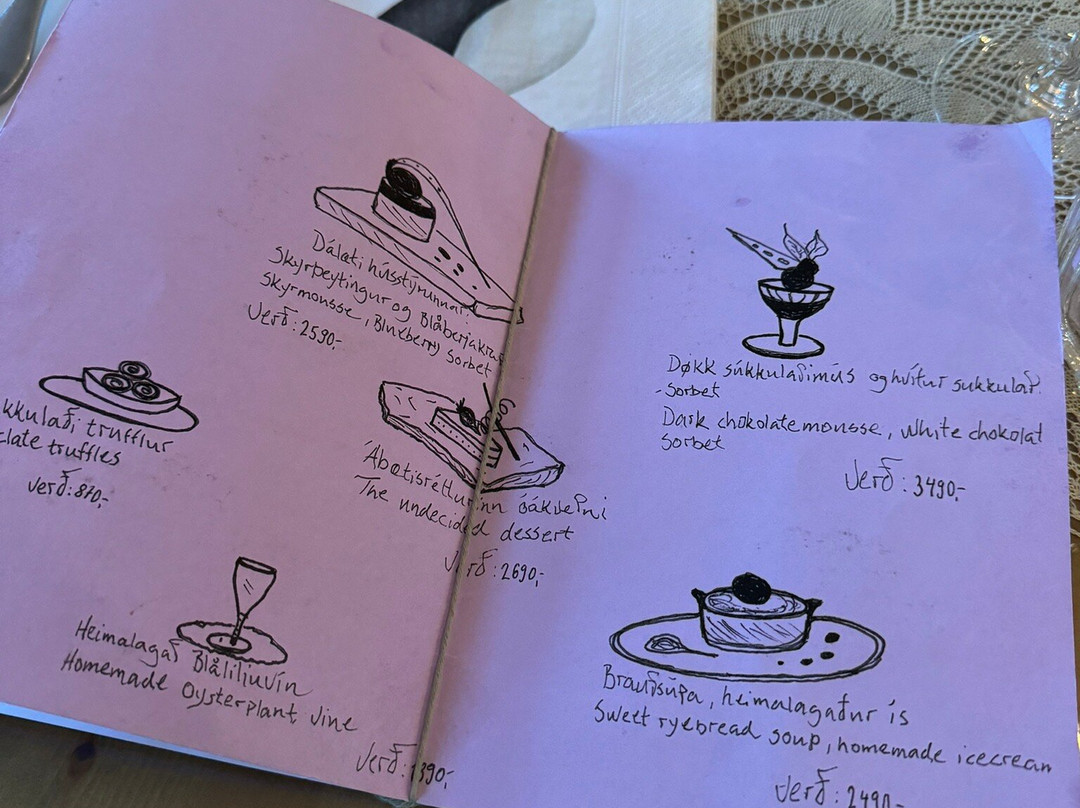 Dálæti hússtýrunnar
Skyrþeytingur og Blåberjakra
Skyrmousse, Blueberry Sorbet
Verð: 2590,-
kkulaði trufflur
late truffles
verð: 810,-
Ábætisrétturinn óákveðni
The undecided dessert
Verð: 2690,-
Heimalagað Blåliliuvín
Homemade Oysterplant Vine
Verð: 390,-
Døkk súkkulaðimús og hvítur sukkulað.
-sorbet
Dark chokolate mousse, white chokolat
Sorbet
Verð: 3490,-
Brauðsúpa, heimalagaður ís
Sweet ryebread soup, homemade icecream
Verð: 2490,-